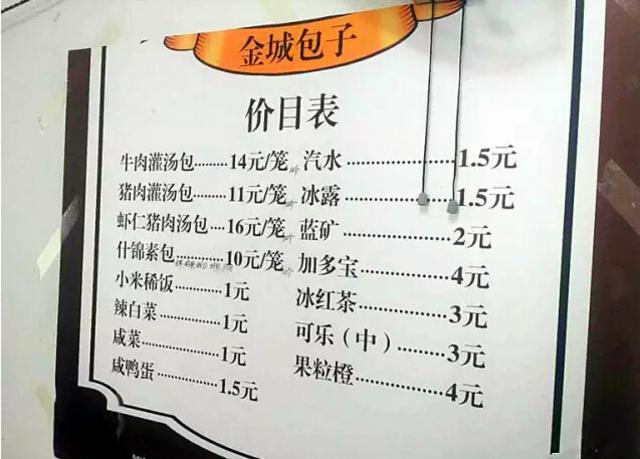 金城包子
价目表
牛肉灌汤包........14元/笼 汽水....................1.5元
猪肉灌汤包........11元/笼 冰露....................1.5元
虾仁猪肉汤包....16元/笼 蓝矿....................2元
什锦素包............10元/笼 加多宝................4元
小米稀饭............1元 冰红茶................3元
辣白菜................1元 可乐（中）..........3元
咸菜....................1元 果粒橙................4元
咸鸭蛋................1.5元